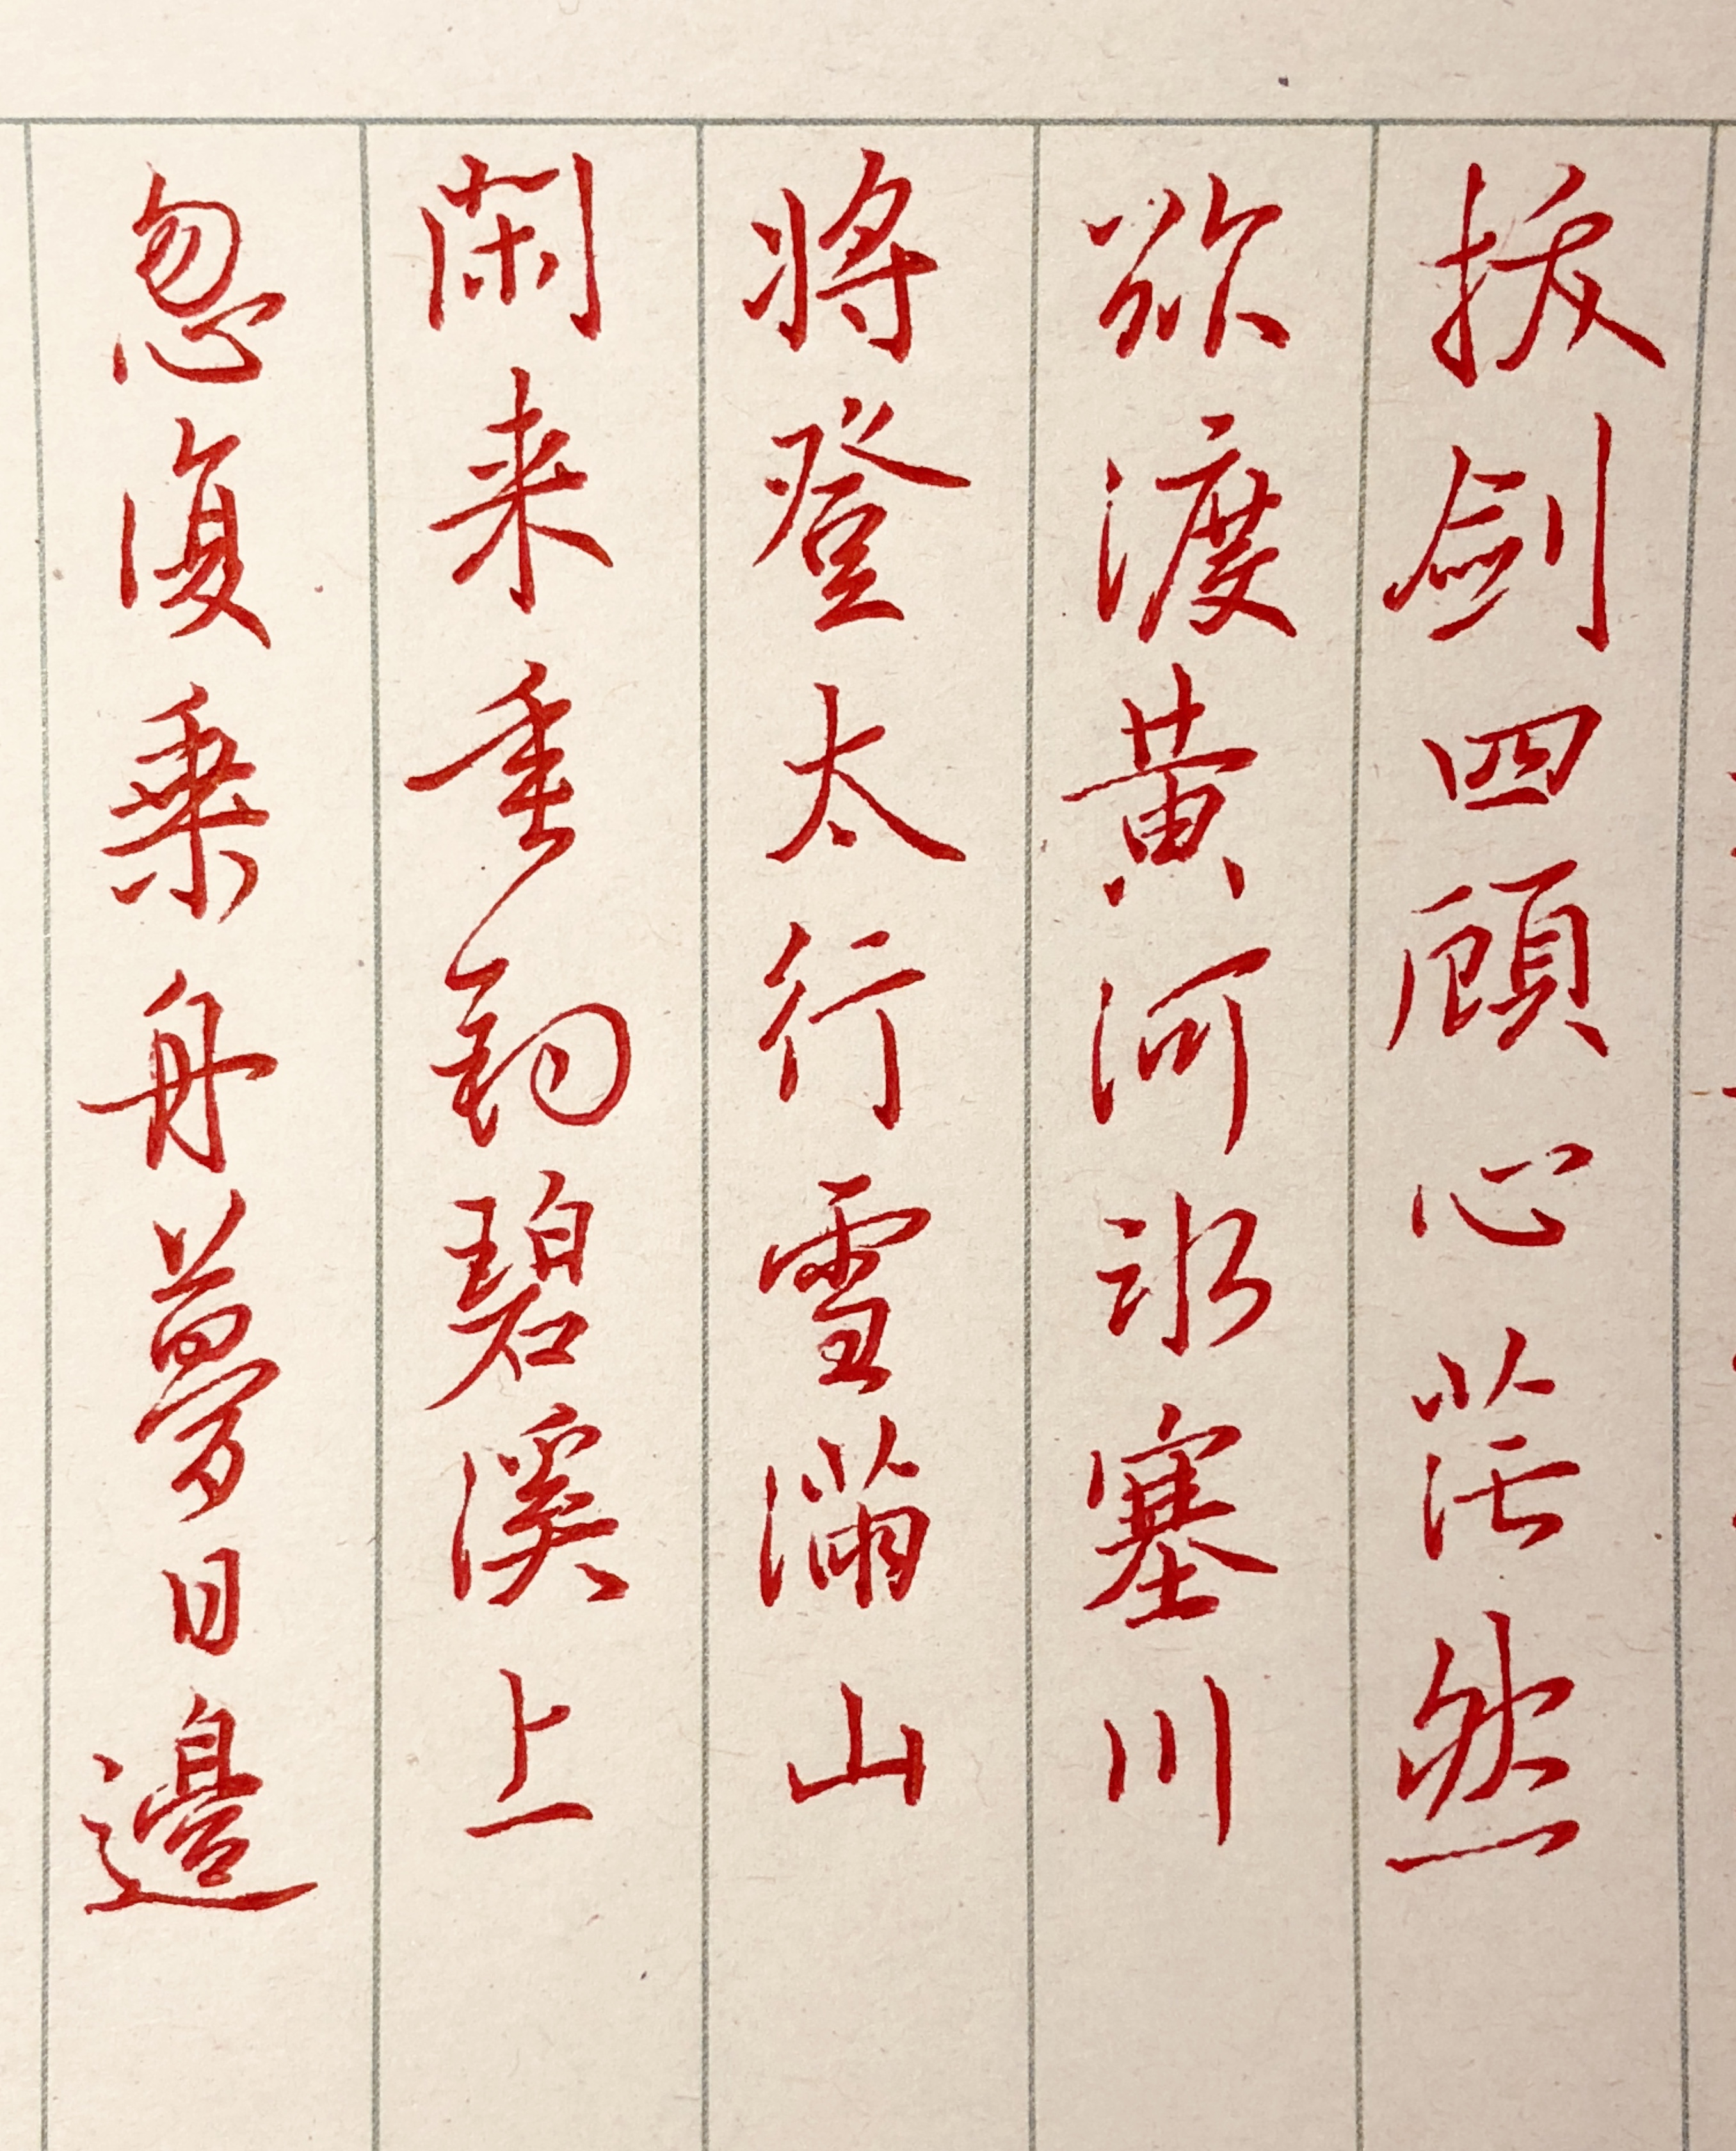 拔劍四顧心茫然
欲渡黃河冰塞川
將登太行雪滿山
閑来垂釣碧溪上
忽復乘舟夢日邊